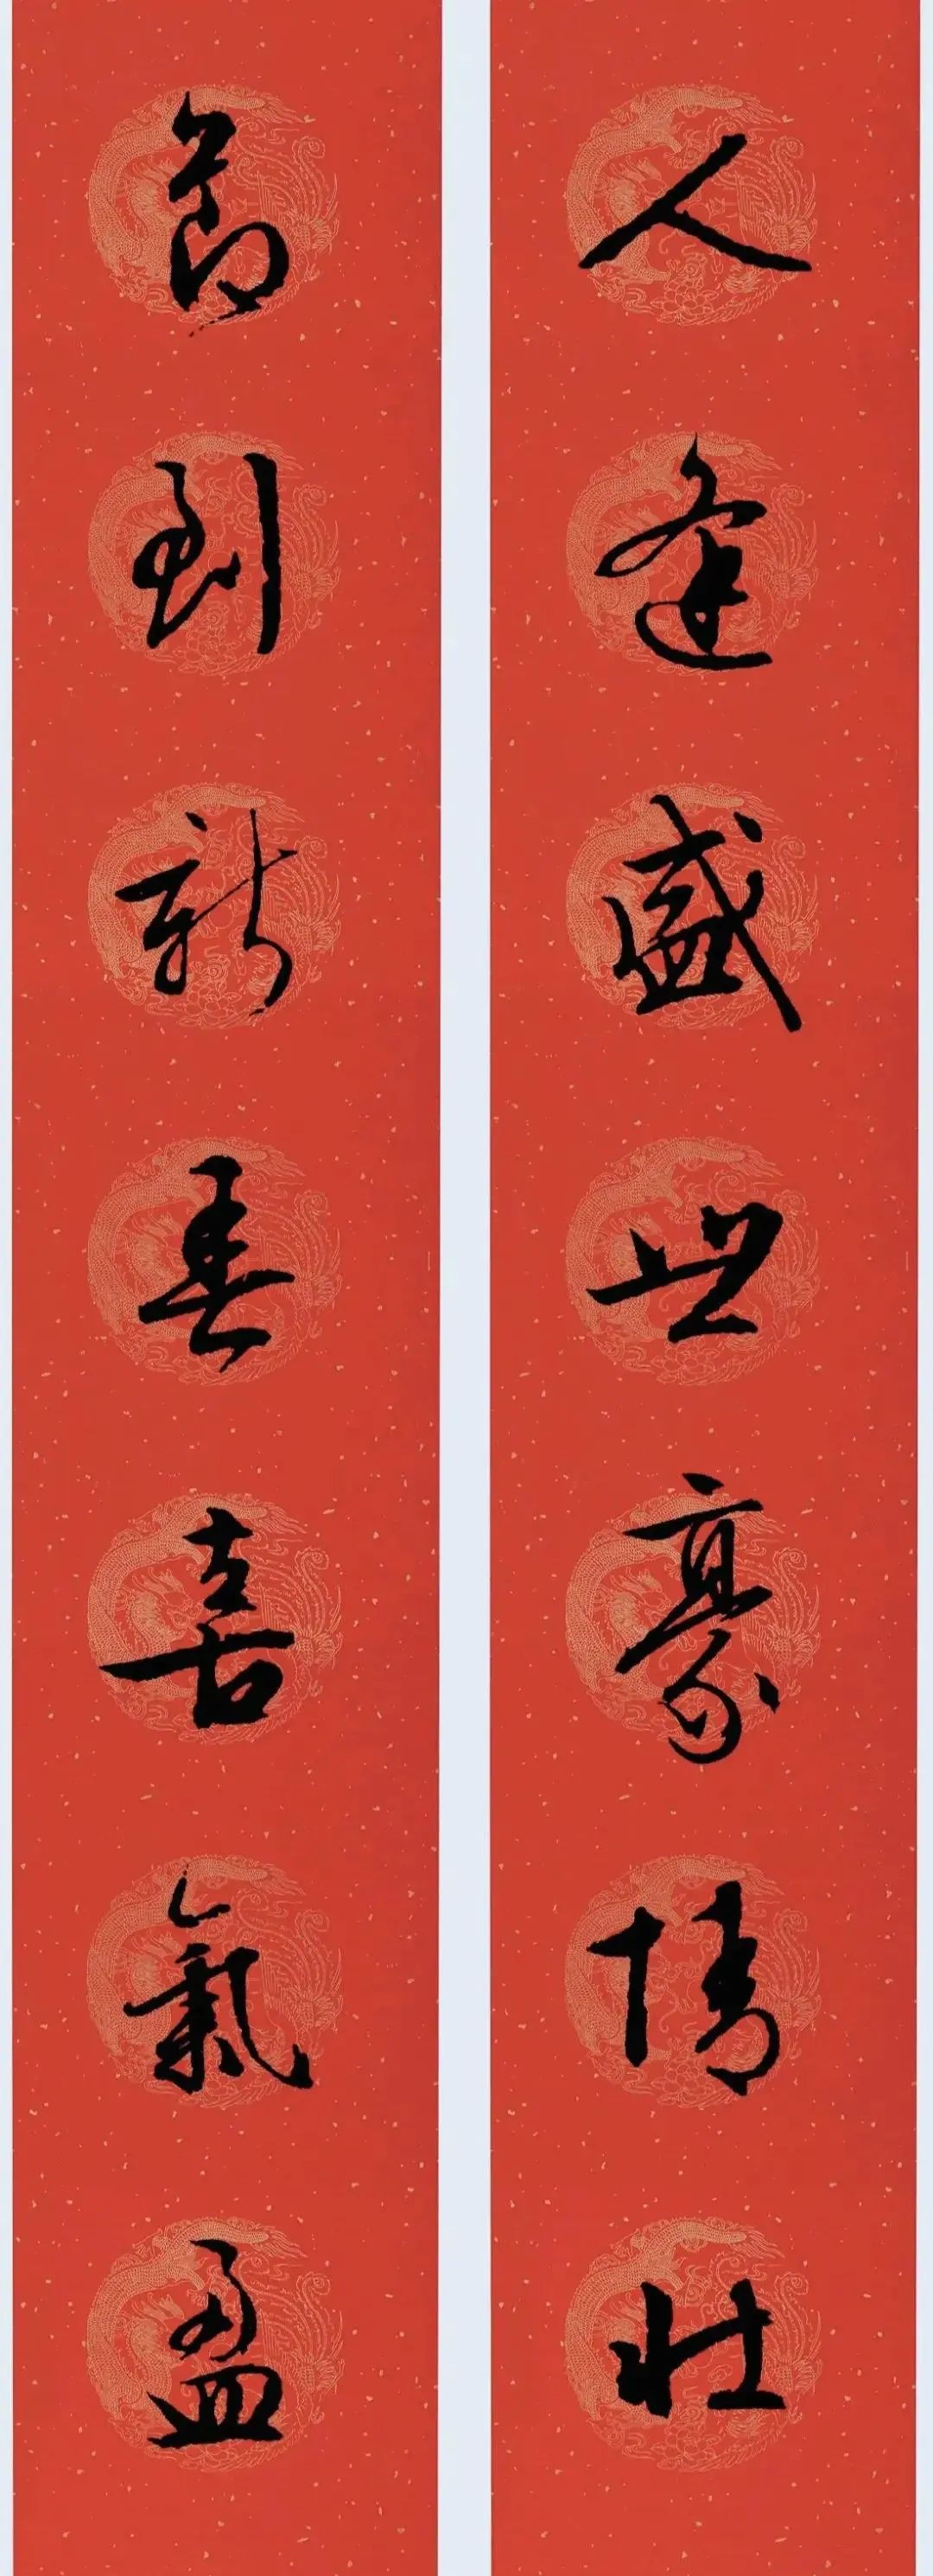 人逢盛世豪情壮
节到新春喜氣盈